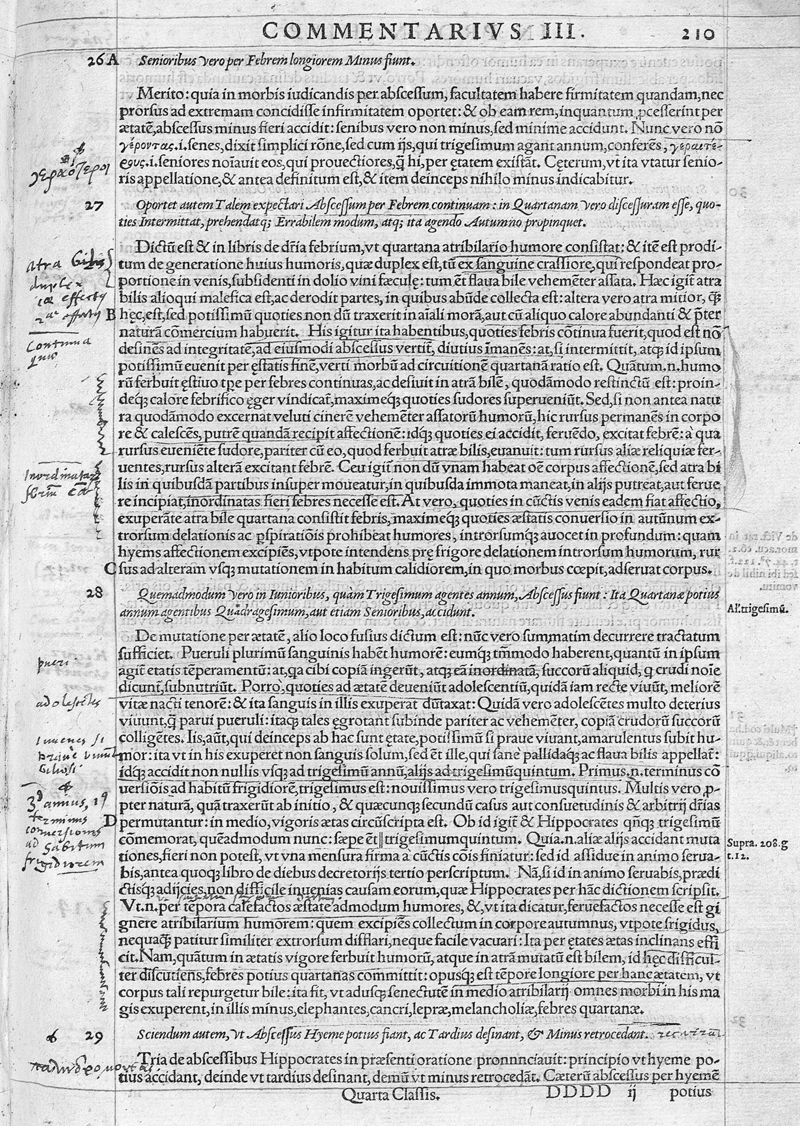 COMMENTARIVS III. 210
26 A Senioribus vero per Febrem longiorem Minus fiunt.
Merito: quia in morbis iudicandis per abscessum, facultatem habere firmitatem quandam, nec
prorsus ad extremam concidisse infirmitatem oportet: & ob eam rem, inquantum, pcesserint per
ætatē, abscessus minus fieri accidit: senibus vero non minus, sed minime accidunt. Nunc vero nō
γέροντας .i. senes, dixit simplici rōne, sed cum ijs, qui trigesimum agant annum, conferēs, γεραιτέ-
ρους .i. seniores noīauit eos, qui prouectiores, q̄ hi, per ętatem existāt. Cęterum, vt ita vtatur senio-
ris appellatione, & antea definitum est, & item deinceps nihilo minus indicabitur.
27 Oportet autem Talem expectari Abscessum per Febrem continuam: in Quartanam vero discessuram esse, quo-
ties Intermittat, prehendatq; Errabilem modum, atq; ita agendo Autumno propinquet.
Dictū est & in libris de dr̄ia febrium, vt quartana atribilario humore consistat: & itē est prodi-
tum de generatione huius humoris, quæ duplex est, tū ex sanguine crassiore, qui respondeat pro-
portione in venis, subsidenti in dolio vini fæculę: tum ēt flaua bile vehemēter assata. Hæc igit̄ atra
bilis alioqui malefica est, ac derodit partes, in quibus abūde collecta est: altera vero atra mitior, q̄3
B hęc, est, sed potissimū quoties non dū traxerit in aīali morā, aut cū aliquo calore abundanti & p̄ter
naturā cōmercium habuerit. His igitur ita habentibus, quoties febris cōtinua fuerit, quod est nō
desinēs ad integritatē, ad eiusmodi abscessus vertit, diutius īmanēs: at, si intermittit, atq; id ipsum
potissimū euenit per ęstatis finē, verti morbū ad circuitionē quartanā ratio est. Quātum .n. humo
rū ferbuit ęstiuo tp̄e per febres continuas, ac desiuit in atrā bilē, quodāmodo restinctū est: proin-
deq; calore febrifico ęger vindicat̄, maximeq; quoties sudores superueniūt. Sed, si non antea natu
ra quodāmodo excernat veluti cinerē vehemēter assatorū humorū, hic rursus permanēs in corpo
re & calescēs, putrē quandā recipit affectionē: idq; quoties ei accidit, feruēdo, excitat febrē: a qua
rursus eueniēte sudore, pariter cū eo, quod ferbuit atræ bilis, euanuit: tum rursus aliæ reliquiæ fer-
uentes, rursus alterā excitant febrē. Ceu igit̄ non dū vnam habeat oē corpus affectionē, sed atra bi
lis in quibusdā partibus insuper moueatur, in quibusdā immota maneat, in alijs putreat, aut ferue
re incipiat, inordinatas fieri febres necesse est. At vero, quoties in cūctis venis eadem fiat affectio,
exuperāte atra bile quartana consistit febris, maximeq; quoties æstatis conuersio in autūnum ex-
trorsum delationis ac pspiratiōis prohibeat humores, introrsumq; auocet in profundum: quam
hyems affectionem excipiēs, vtpote intendens prę frigore delationem introrsum humorum, rur
C sus ad alteram vsq; mutationem in habitum calidiorem, in quo morbus cœpit, adseruat corpus.
28 Quemadmodum vero in Iunioribus, quàm Trigesimum agentes annum, Abscessus fiunt: Ita Quartanæ potius
annum agentibus Quadragesimum, aut etiam Senioribus, accidunt.
Al. trigesimū.
De mutatione per ætatē, alio loco fusius dictum est: nūc vero summatim decurrere tractatum
sufficiet. Pueruli plurimū sanguinis habēt humorē: eumq; tm̄modo haberent, quantū in ipsum
agit̄ etatis tēperamentū: at, qa cibi copiā ingerūt, atq; eā inordinatā, succorū aliquid, q crudi noīe
dicunt̄, subnutriūt. Porro, quoties ad ætatē deueniūt adolescentiū, quidā iam recte viuūt, meliorē
vitæ nacti tenorē: & ita sanguis in illis exuperat dūtaxat: Quidā vero adolescētes multo deterius
viuunt, q̄ parui pueruli: itaq; tales ęgrotant subinde pariter ac vehemēter, copiā crudorū succorū
colligētes. Iis, aūt, qui deinceps ab hac sunt ętate, potissimū si praue viuant, amarulentus subit hu-
mor: ita vt in his exuperet non sanguis solum, sed ēt ille, qui sanè pallidaq; ac flaua bilis appellat̄:
idq; accidit non nullis vsq; ad trigesimū annū, alijs ad trigesimūquintum. Primus .n. terminus cō
uersiōis ad habitū frigidiorē, trigesimus est: nouissimus vero trigesimusquintus. Multis vero, p-
pter naturā, quā traxerūt ab initio, & quæcunq; secundū casus aut consuetudinis & arbitrij dr̄ias
D permutantur: in medio, vigoris ætas circūscripta est. Ob id igit̄ & Hippocrates qn̄q; trigesimū
cōmemorat, quēadmodum nunc: sæpe ēt trigesimumquintum. Quia .n. aliæ alijs accidant muta
tiones, fieri non potest, vt vna mensura firma a cūctis cōis finiatur: sed id assidue in animo serua-
Supra. 208. g
t. 12.
bis, antea quoq; libro de diebus decretorijs tertio perscriptum. Nā, si id in animo seruabis, prædi
ctisq; adijcies, non difficile inuenias causam eorum, quæ Hippocrates per hāc dictionem scripsit.
Vt .n. per tēpora calefactos æstate admodum humores, &, vt ita dicatur, feruefactos necesse est gi
gnere atribilarium humorem: quem excipiēs collectum in corpore autumnus, vtpote frigidus,
nequaq̄ patitur similiter extrorsum difflari, neque facile vacuari: Ita per ętates ætas inclinans effi
cit. Nam, quātum in ætatis vigore ferbuit humorū, atque in atrā mutatū est bilem, id hęc difficul-
ter discutiens, febres potius quartanas committit: opusq; est tēpore longiore per hanc ætatem, vt
corpus tali repurgetur bile: ita fit, vt adusq; senectutē in medio atribilarij omnes morbi in his ma
gis exuperent, in illis minus, elephantes, cancri, lepræ, melancholiæ, febres quartanæ.
29 Sciendum autem, vt Abscessus Hyeme potius fiant, ac Tardius desinant, & Minus retrocedant.
Tria de abscessibus Hippocrates in præsenti oratione pronnnciauit: principio vt hyeme po-
tius accidant, deinde vt tardius desinant, demū vt minus retrocedāt. Cæterū abscessus per hyemē
Quarta Classis. DDDD ij potius
atra bilis
duplex
Continua
Inordinatæ
pueri
adolescētes
Iuuenes si
praue viuunt
biliosi
terminus
conuersionis
ad habitum
frigidiorem